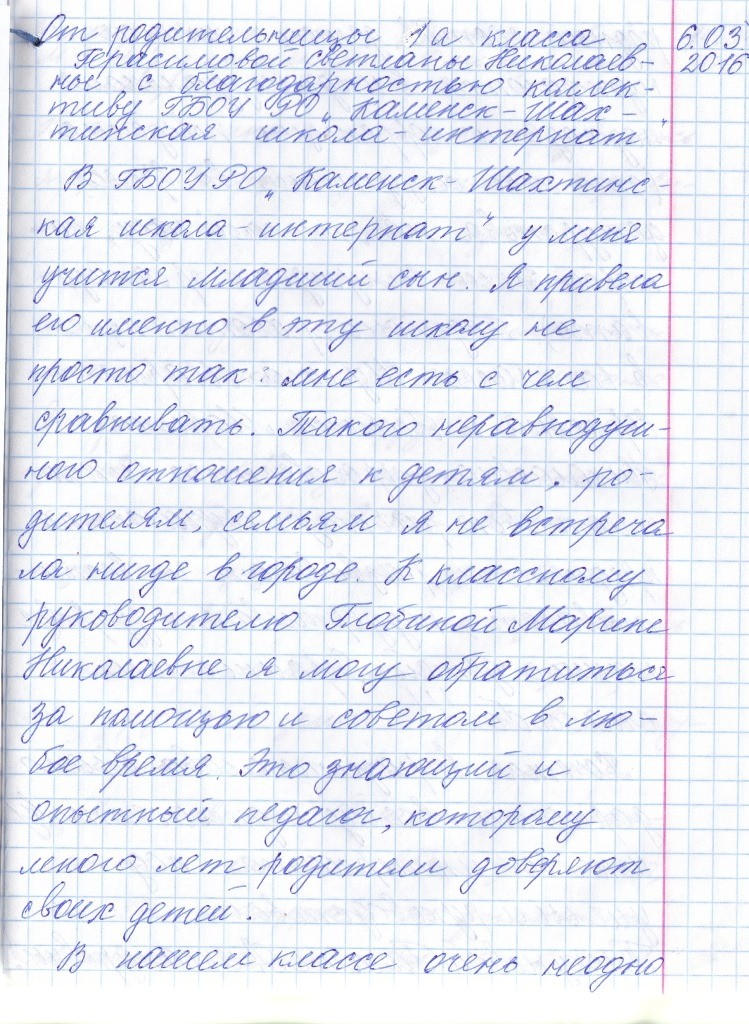 От родительницы 1а класса 6.03
Герасимовой Светланы Николаев- 2016
ны с благодарностью коллек-
тиву ГБОУ РО „Каменск-Шах-
тинская школа-интернат"
В ГБОУ РО „Каменск-Шахтинс-
кая школа-интернат" у меня
учится младший сын. Я привела
его именно в эту школу не
просто так: мне есть с чем
сравнивать. Такого неравнодуш-
ного отношения к детям, ро-
дителям, семьям я не встреча
ла нигде в городе. К классному
руководителю Глобиной Марине
Николаевне я могу обратиться
за помощью и советом в лю-
бое время. Это знающий и
опытный педагог, которому
много лет родители доверяют
своих детей.
В нашем классе очень неодно